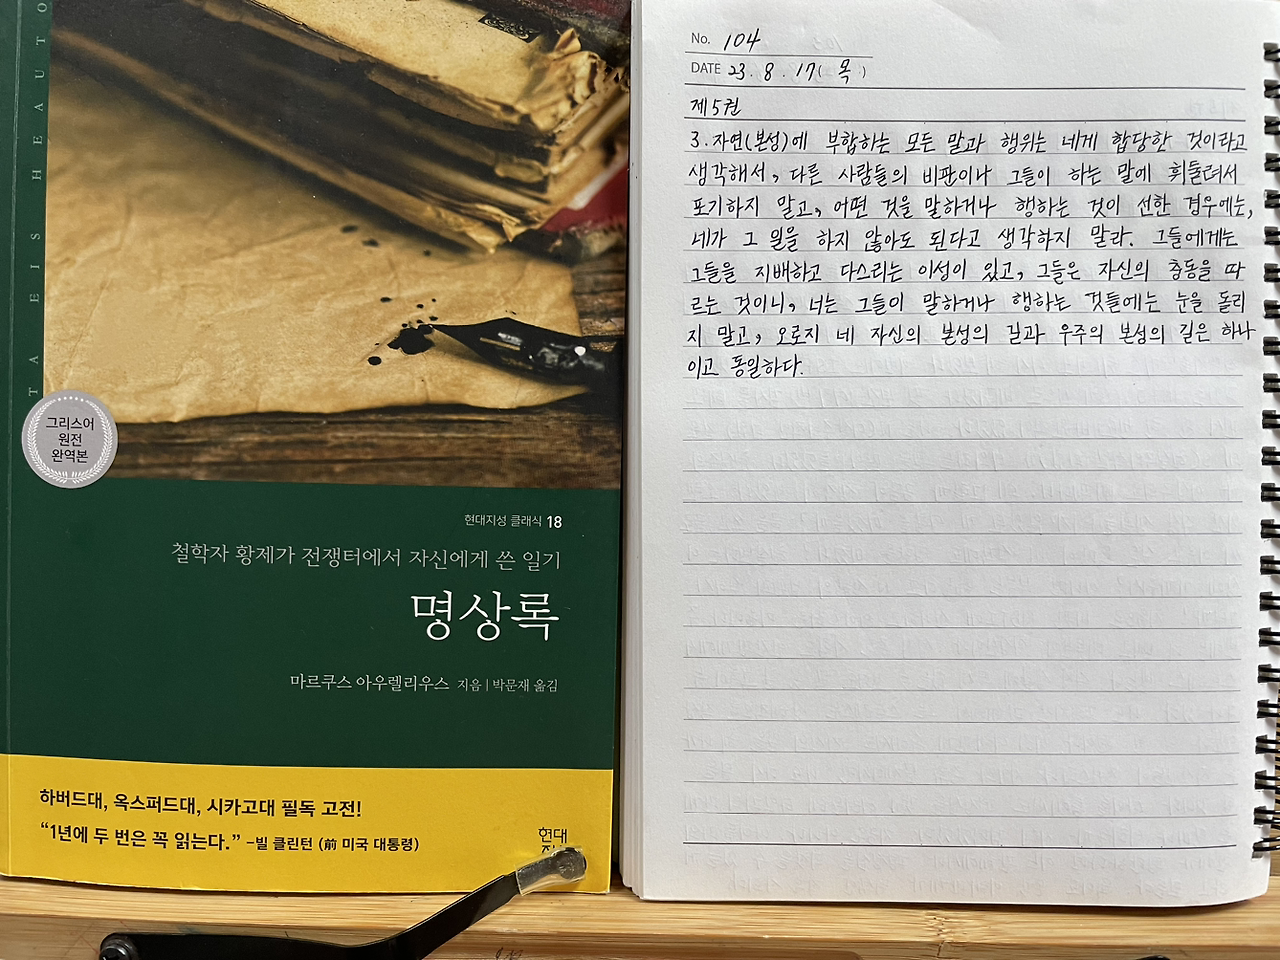 TA EIS HEAUTO
그리스어
원전
완역본
현대지성 클래식 18
철학자 황제가 전쟁터에서 자신에게 쓴 일기
명상록
마르쿠스 아우렐리우스 지음 | 박문재 옮김
하버드대, 옥스퍼드대, 시카고대 필독 고전!
“1년에 두 번은 꼭 읽는다.” -빌 클린턴 (前 미국 대통령)
현대
No. 104
DATE 23. 8. 17( 목 )
제5권
3. 자연(본성)에 부합하는 모든 말과 행위는 네게 합당한 것이라고
생각해서, 다른 사람들의 비판이나 그들이 하는 말에 휘둘려서
포기하지 말고, 어떤 것을 말하거나 행하는 것이 선한 경우에는,
네가 그 일을 하지 않아도 된다고 생각하지 말라. 그들에게는
그들을 지배하고 다스리는 이성이 있고, 그들은 자신의 충동을 따
르는 것이니, 너는 그들이 말하거나 행하는 것들에는 눈을 돌리
지 말고, 오로지 네 자신의 본성의 길과 우주의 본성의 길은 하나
이고 동일하다.